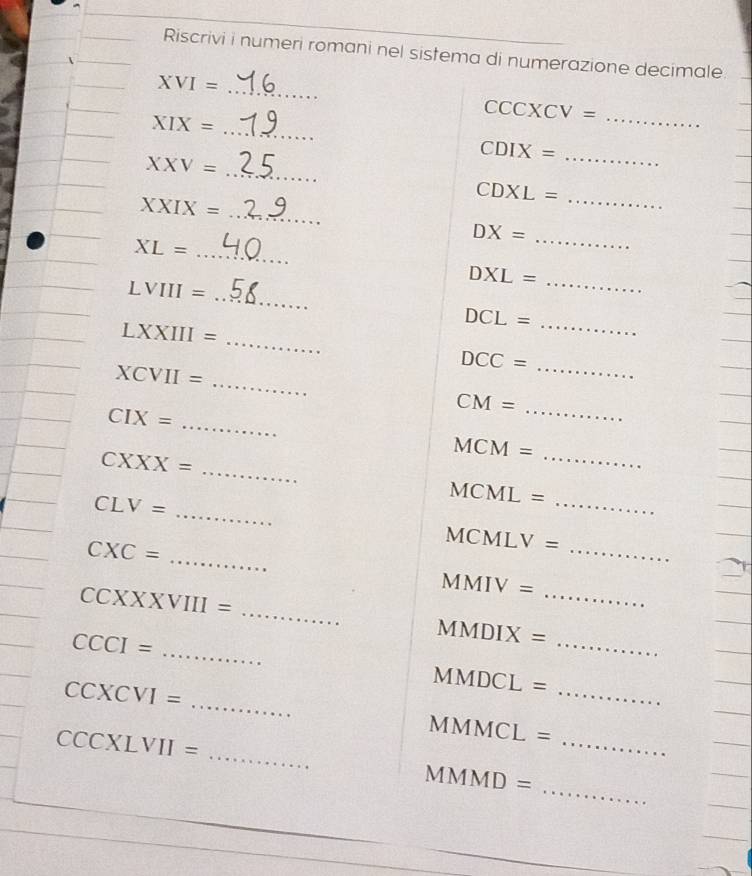 Riscrivi i numeri romani nel sistema di numerazione decimale
XVI = 16
XIX = 19
XXV = 25
XXIX = 29
XL = 40
LVIII = 58
LXXIII = ............
XCVII = ............
CIX = ............
CXXX = ............
CLV = ............
CXC = ............
CCXXXVIII = ............
CCCI = ............
CCXCVI = ............
CCCXLVII = ............
CCCXCV = ............
CDIX = ............
CDXL = ............
DX = ............
DXL = ............
DCL = ............
DCC = ............
CM = ............
MCM = ............
MCML = ............
MCMLV = ............
MMIV = ............
MMDIX = ............
MMDCL = ............
MMMCL = ............
MMMD = ............